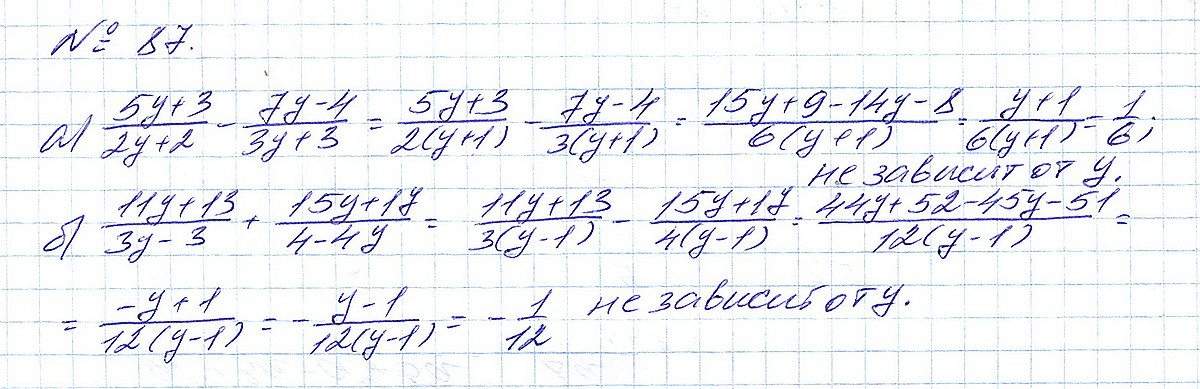 № 87.
а) (5y+3)/(2y+2) - (7y-4)/(3y+3) = (5y+3)/(2(y+1)) - (7y-4)/(3(y+1)) = (15y+9-14y-8)/(6(y+1)) = (y+1)/(6(y+1)) = 1/6;
не зависит от y.
б) (11y+13)/(3y-3) + (15y+17)/(4-4y) = (11y+13)/(3(y-1)) - (15y+17)/(4(y-1)) = (44y+52-45y-51)/(12(y-1)) =
= (-y+1)/(12(y-1)) = - (y-1)/(12(y-1)) = - 1/12 не зависит от y.